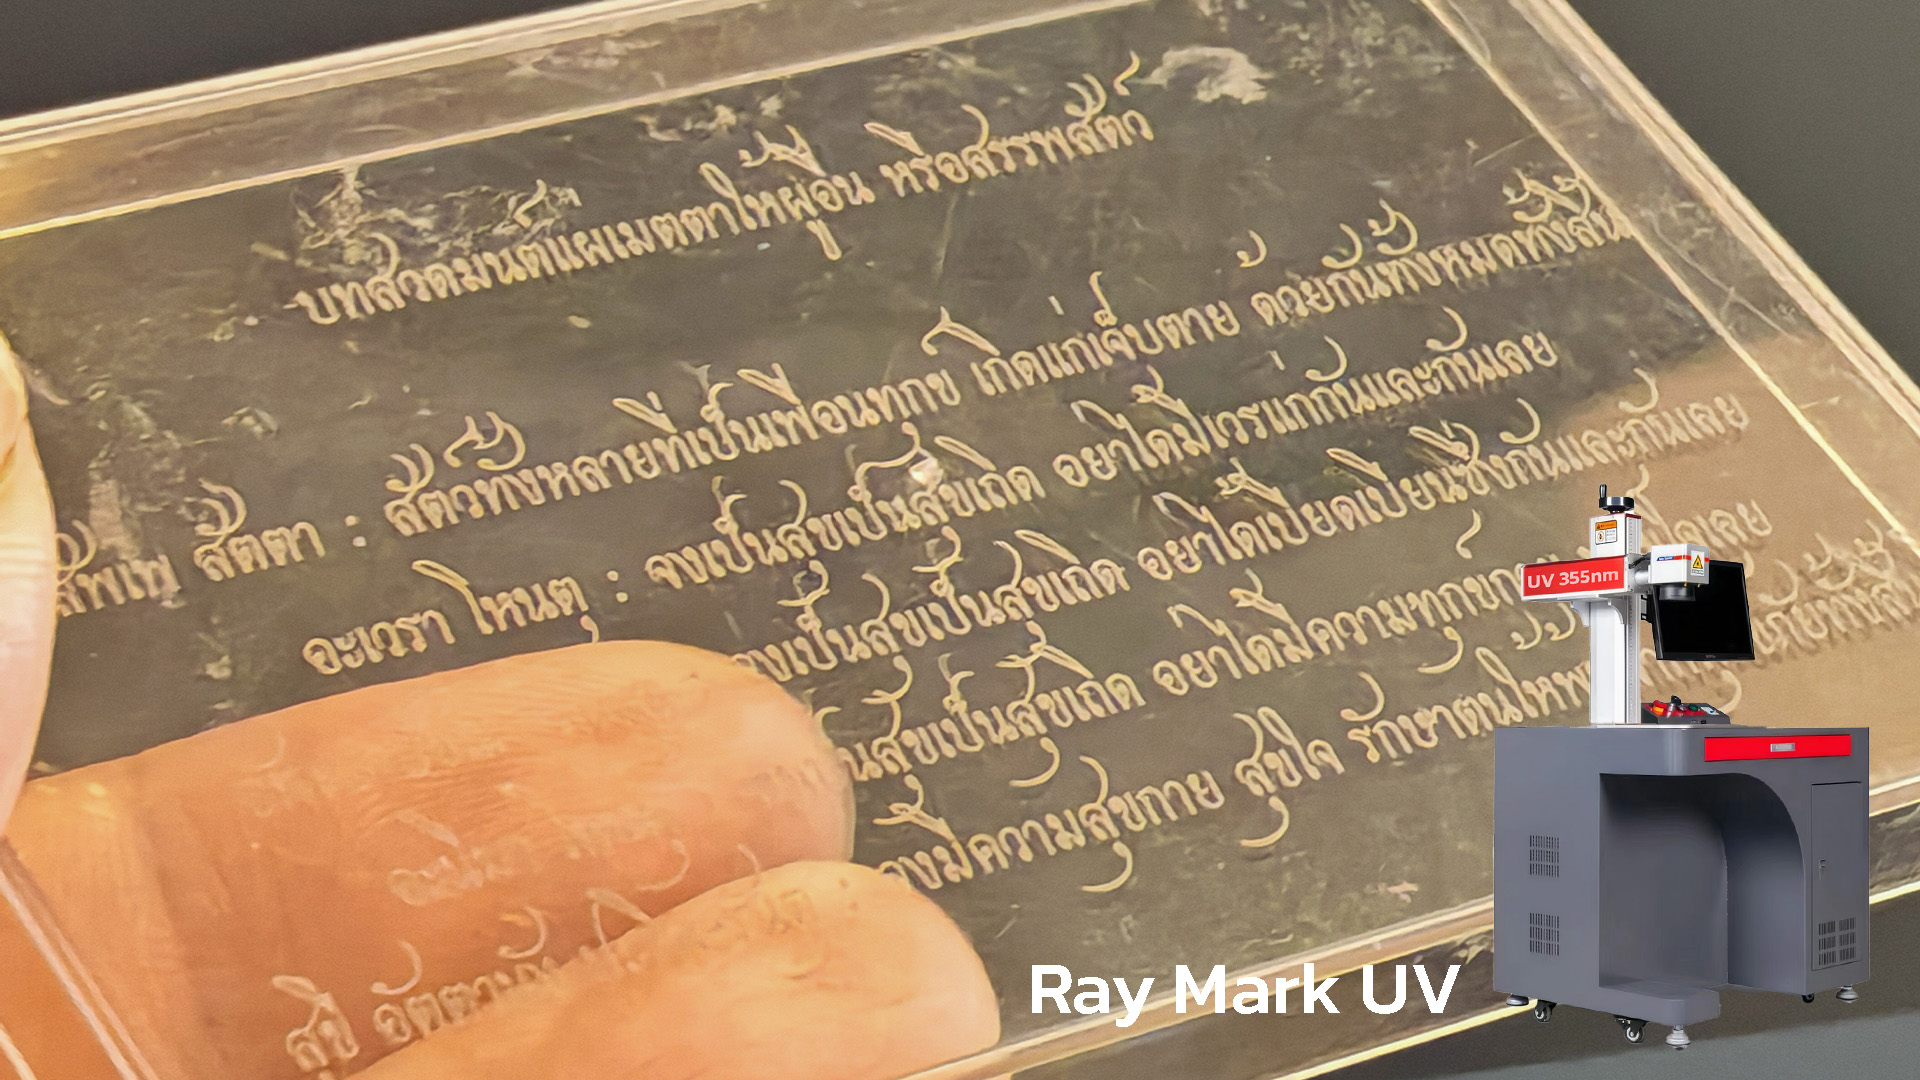 บทสวดมนต์แผ่เมตตาให้ผู้อื่น หรือสรรพสัตว์
สัพเพ สัตตา : สัตว์ทั้งหลายที่เป็นเพื่อนทุกข์ เกิดแก่เจ็บตาย ด้วยกันทั้งหมดทั้งสิ้น
อะเวรา โหนตุ : จงเป็นสุขเป็นสุขเถิด อย่าได้มีเวรแก่กันและกันเลย
จงเป็นสุขเป็นสุขเถิด อย่าได้เบียดเบียนซึ่งกันและกันเลย
สุขเป็นสุขเถิด อย่าได้มีความทุกข์
จงมีความสุขกาย สุขใจ รักษาตนให้พ้น
สุขี อัตตานัง
UV 355nm
Ray Mark UV